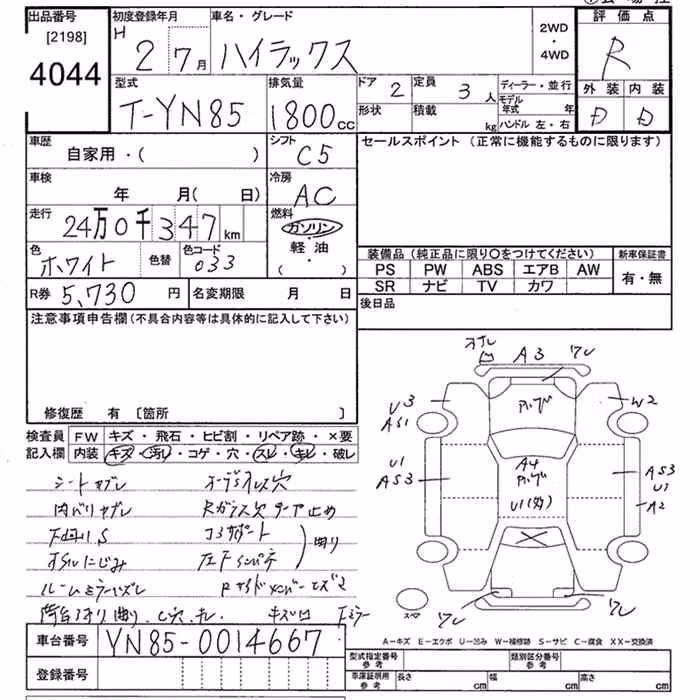 出品番号 初度登録年月 車名・グレード 評価点
[2198] H 2 7月 ハイラックス 2WD・4WD R
4044
型式 排気量 ドア 2 定員 3人 ディーラー・並行 外装 内装
T-YN85 1800cc 形状 積載 kg モデル年式 年 D D
ハンドル 左・右
車歴 シフト セールスポイント (正常に機能するものに限ります)
自家用・( ) C5
車検 冷房
年 月( 日) AC
走行 燃料
24万0千347km ガソリン
色 色替 色コード 軽・油
ホワイト 033 ( )
装備品 (純正品に限り○をつけてください) 新車保証書
PS PW ABS エアB AW 有・無
SR ナビ TV カワ
R券 5,730円 名変期限 月 日 後日品
注意事項申告欄(不具合内容等は具体的に記入して下さい)
修復歴 有 [箇所 ]
A3 ワレ
U3 W2
AS1
A4
U1 AS3
AS3 U1
A2
ワレ ワレ
スペア
検査員 FW キズ・飛石・ヒビ割・リペア跡・×要
記入欄 内装 キズ・汚れ・コゲ・穴・スレ・キレ・破レ
シートヤブレ オーディオレス穴
内バリヤブレ Rガラス穴テープ止め
下廻りS コアサポート
オイルにじみ 曲り
ルームミラーハズレ
車台番号 YN85-0014667
登録番号
A-キズ E-エクボ U-凹み W-補修跡 S-サビ C-腐食 XX-交換済
型式指定番号 参考 類別区分番号 参考
車庫証明用 参考 長さ cm 幅 cm 高さ cm